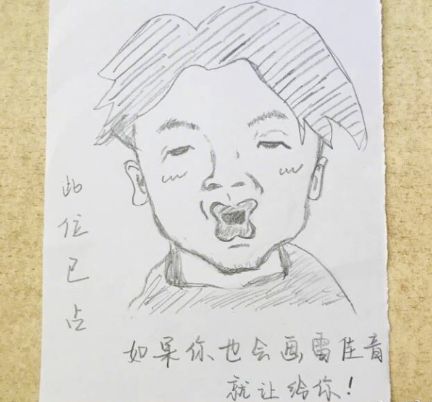 此位已占
如果你也会画雷佳音
就让给你！